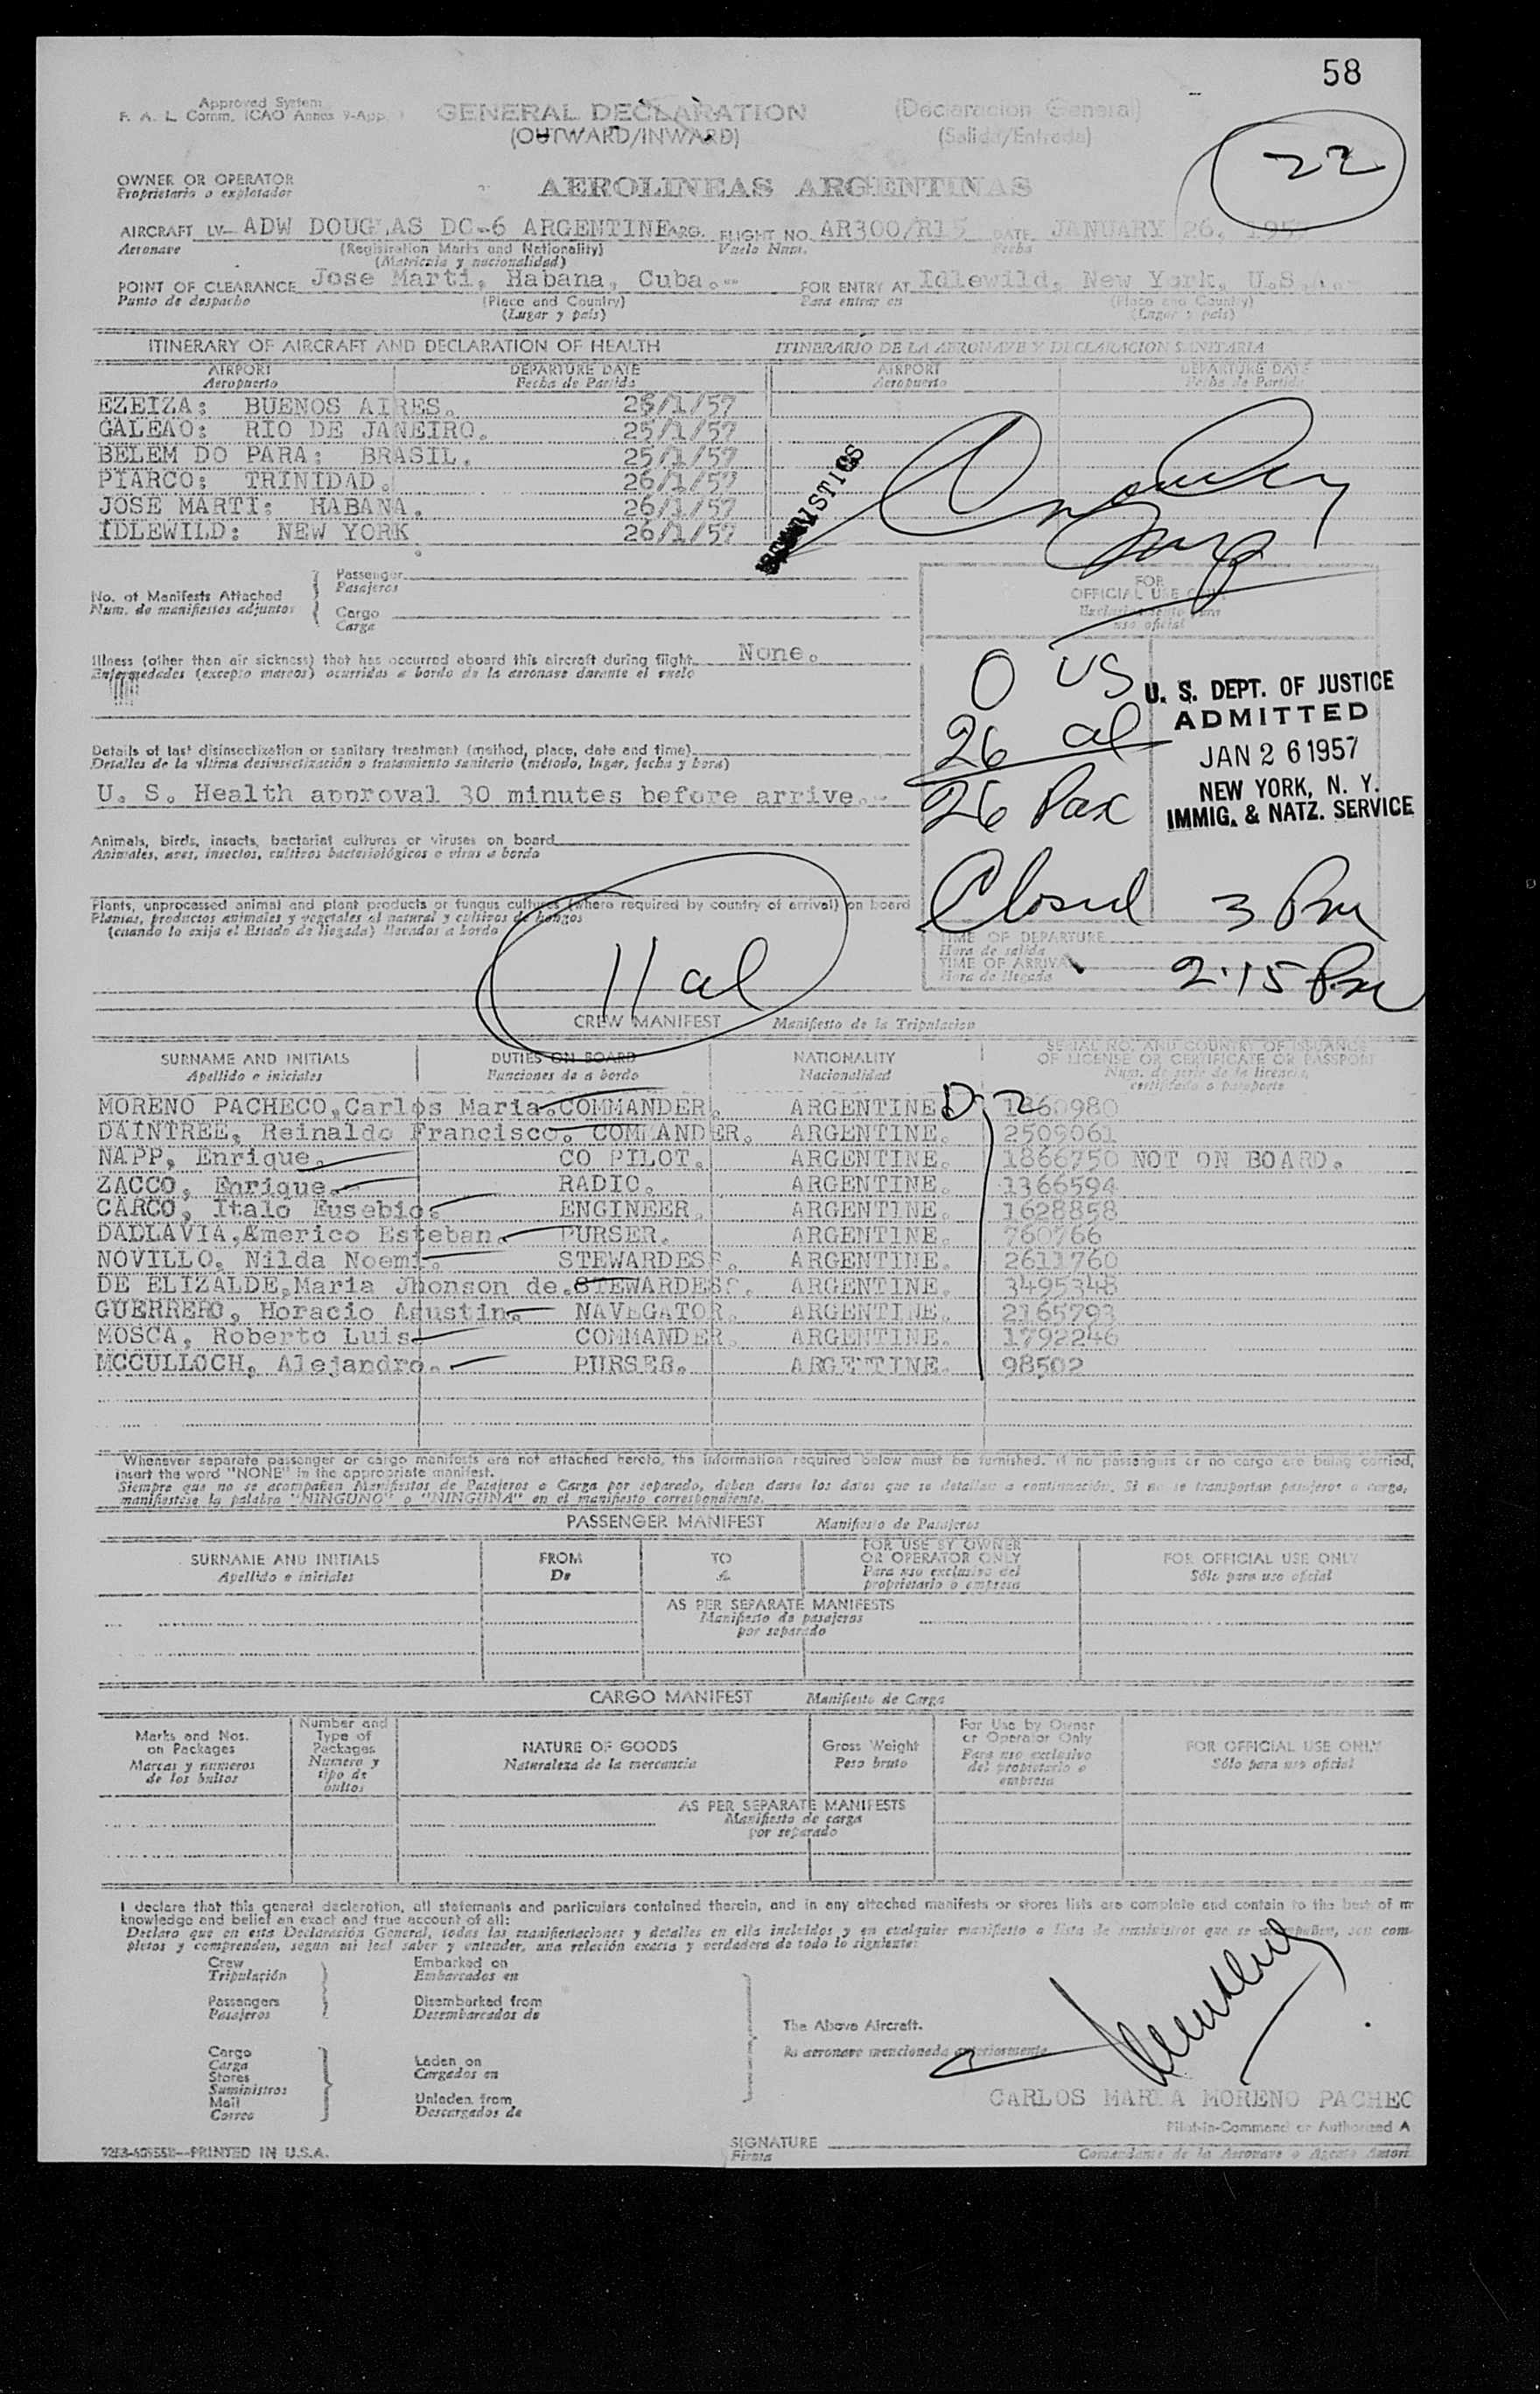 58
Approved System
F. A. L. Comm. ICAO Annex 9-App. 1
GENERAL DECLARATION
(OUTWARD/INWARD)
(Declaracion General)
(Salida/Entrada)
22
OWNER OR OPERATOR
Proprietario o explotador
AEROLINEAS ARGENTINAS
AIRCRAFT LV- ADW DOUGLAS DC-6 ARGENTINE ARG. FLIGHT NO. AR300/R15 DATE JANUARY 26, 1957
Aeronave (Registration Marks and Nationality) Vuelo Num. Fecha
(Matricula y nacionalidad)
POINT OF CLEARANCE Jose Marti, Habana, Cuba.-- FOR ENTRY AT Idlewild, New York, U.S.A.-
Punto de despacho (Place and Country) Para entrar en (Place and Country)
(Lugar y pais) (Lugar y pais)
ITINERARY OF AIRCRAFT AND DECLARATION OF HEALTH ITINERARIO DE LA AERONAVE Y DECLARACION SANITARIA
AIRPORT DEPARTURE DATE AIRPORT DEPARTURE DATE
Aeropuerto Fecha de Partida Aeropuerto Fecha de Partida
EZEIZA: BUENOS AIRES. 25/1/57
GALEAO: RIO DE JANEIRO. 25/1/57
BELEM DO PARA: BRASIL. 25/1/57
PIARCO: TRINIDAD. 26/1/57
JOSE MARTI: HABANA. 26/1/57
IDLEWILD: NEW YORK. 26/1/57
No. of Manifests Attached
Num. de manifiestos adjuntos
Passenger
Pasajeros
Cargo
Carga
FOR
OFFICIAL USE ONLY
Exclusivamente para
uso oficial
Illness (other than air sickness) that has occurred aboard this aircraft during flight None.
Enfermedades (excepto mareos) ocurridas a bordo de la aeronave durante el vuelo
0 US
26 al
26 Pax
U. S. DEPT. OF JUSTICE
ADMITTED
JAN 26 1957
NEW YORK, N. Y.
IMMIG. & NATZ. SERVICE
Details of last disinsectization or sanitary treatment (method, place, date and time)
Detalles de la ultima desinsectización o tratamiento sanitario (método, lugar, fecha y hora)
U. S. Health approval 30 minutes before arrive.-
Animals, birds, insects, bacterial cultures or viruses on board
Animales, aves, insectos, cultivos bacteriológicos o virus a bordo
Plants, unprocessed animal and plant products or fungus cultures (where required by country of arrival) on board
Plantas, productos animales y vegetales al natural y cultivos de hongos
(cuando lo exija el Estado de llegada) llevados a bordo
Closed 3 Pm
TIME OF DEPARTURE
Hora de salida
TIME OF ARRIVAL 2:15 Pm
Hora de llegada
11 al
CREW MANIFEST Manifiesto de la Tripulacion
SURNAME AND INITIALS DUTIES ON BOARD NATIONALITY SERIAL NO. AND COUNTRY OF ISSUANCE
OF LICENSE OR CERTIFICATE OR PASSPORT
Apellido e iniciales Funciones de a bordo Nacionalidad Num. de serie de la licencia,
certificado o pasaporte
D-2
MORENO PACHECO, Carlos Maria. COMMANDER. ARGENTINE. 1360980
DAINTREE, Reinaldo Francisco. COMMANDER. ARGENTINE. 2509061
NAPP, Enrique. CO PILOT. ARGENTINE. 1866750 NOT ON BOARD.
ZACCO, Enrique. RADIO. ARGENTINE. 1366594
CARCO, Italo Eusebio. ENGINEER. ARGENTINE. 1628858
DALLAVIA, Americo Esteban. PURSER. ARGENTINE. 760766
NOVILLO, Nilda Noemi. STEWARDESS. ARGENTINE. 2611760
DE ELIZALDE, Maria Jhonson de. STEWARDESS. ARGENTINE. 3495348
GUERRERO, Horacio Agustin. NAVEGATOR. ARGENTINE. 2165793
MOSCA, Roberto Luis COMMANDER. ARGENTINE. 1792246
MCCULLOCH, Alejandro. PURSER. ARGENTINE. 98502
Whenever separate passenger or cargo manifests are not attached hereto, the information required below must be furnished. If no passengers or no cargo are being carried,
insert the word "NONE" in the appropriate manifest.
Siempre que no se acompañen Manifiestos de Pasajeros o Carga por separado, deben darse los datos que se detallan a continuación. Si no se transportan pasajeros o carga,
manifiestese la palabra "NINGUNO" o "NINGUNA" en el manifiesto correspondiente.
PASSENGER MANIFEST Manifiesto de Pasajeros
SURNAME AND INITIALS FROM TO FOR USE BY OWNER OR OPERATOR ONLY FOR OFFICIAL USE ONLY
Apellido e iniciales De A Para uso exclusivo del proprietario o empresa Sólo para uso oficial
AS PER SEPARATE MANIFESTS
Manifiesto de pasajeros
por separado
CARGO MANIFEST Manifiesto de Carga
Marks and Nos. on Packages Number and Type of Packages NATURE OF GOODS Gross Weight For Use by Owner or Operator Only FOR OFFICIAL USE ONLY
Marcas y numeros de los bultos Numero y tipo de bultos Naturaleza de la mercancia Peso bruto Para uso exclusivo del propietario o empresa Sólo para uso oficial
AS PER SEPARATE MANIFESTS
Manifiesto de carga
por separado
I declare that this general declaration, all statements and particulars contained therein, and in any attached manifests or stores lists are complete and contain to the best of m
knowledge and belief an exact and true account of all:
Declaro que en esta Declaración General, todas las manifestaciones y detalles en ella incluidos y en cualquier manifiesto o lista de suministros que se acompañen, son com-
pletos y comprenden, segun mi leal saber y entender, una relación exacta y verdadera de todo lo siguiente:
Crew Embarked on
Tripulación Embarcados en
Passengers Disembarked from
Pasajeros Desembarcados de
The Above Aircraft.
La aeronave mencionada anteriormente
Cargo
Carga Laden on
Stores Cargados en
Suministros
Mail Unladen from
Correo Descargados de
CARLOS MARIA MORENO PACHEC
Pilot-in-Command or Authorized A
SIGNATURE
Firma
Comandante de la Aeronave o Agente Autori
PRINTED IN U.S.A.